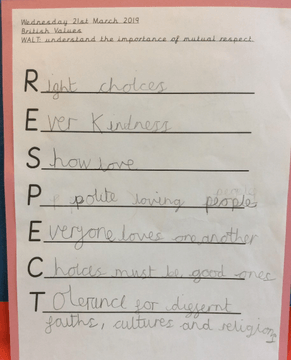 Wednesday 21st March 2019
British Values
WALT: understand the importance of mutual respect
Right choices
Ever Kindness
Show love
P polite loving people
Everyone loves one another
Choices must be good ones
Tolerancd for differnt
faiths, cultures and religions